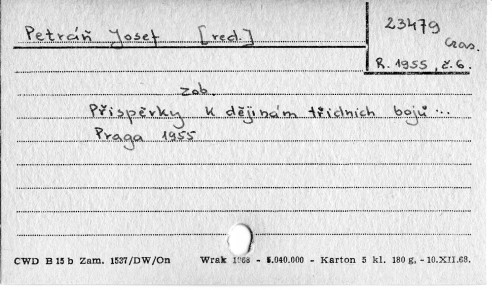 Petráň Josef [red.]
23479
Czas.
R. 1955, č. 6.
zob.
Přispěvky k dějinám třídních bojů...
Praga 1955
CWD B 15 b Zam. 1537/DW/On Wrak 1968 - 5.040.000 - Karton 5 kl. 180 g. - 10.XII.68.